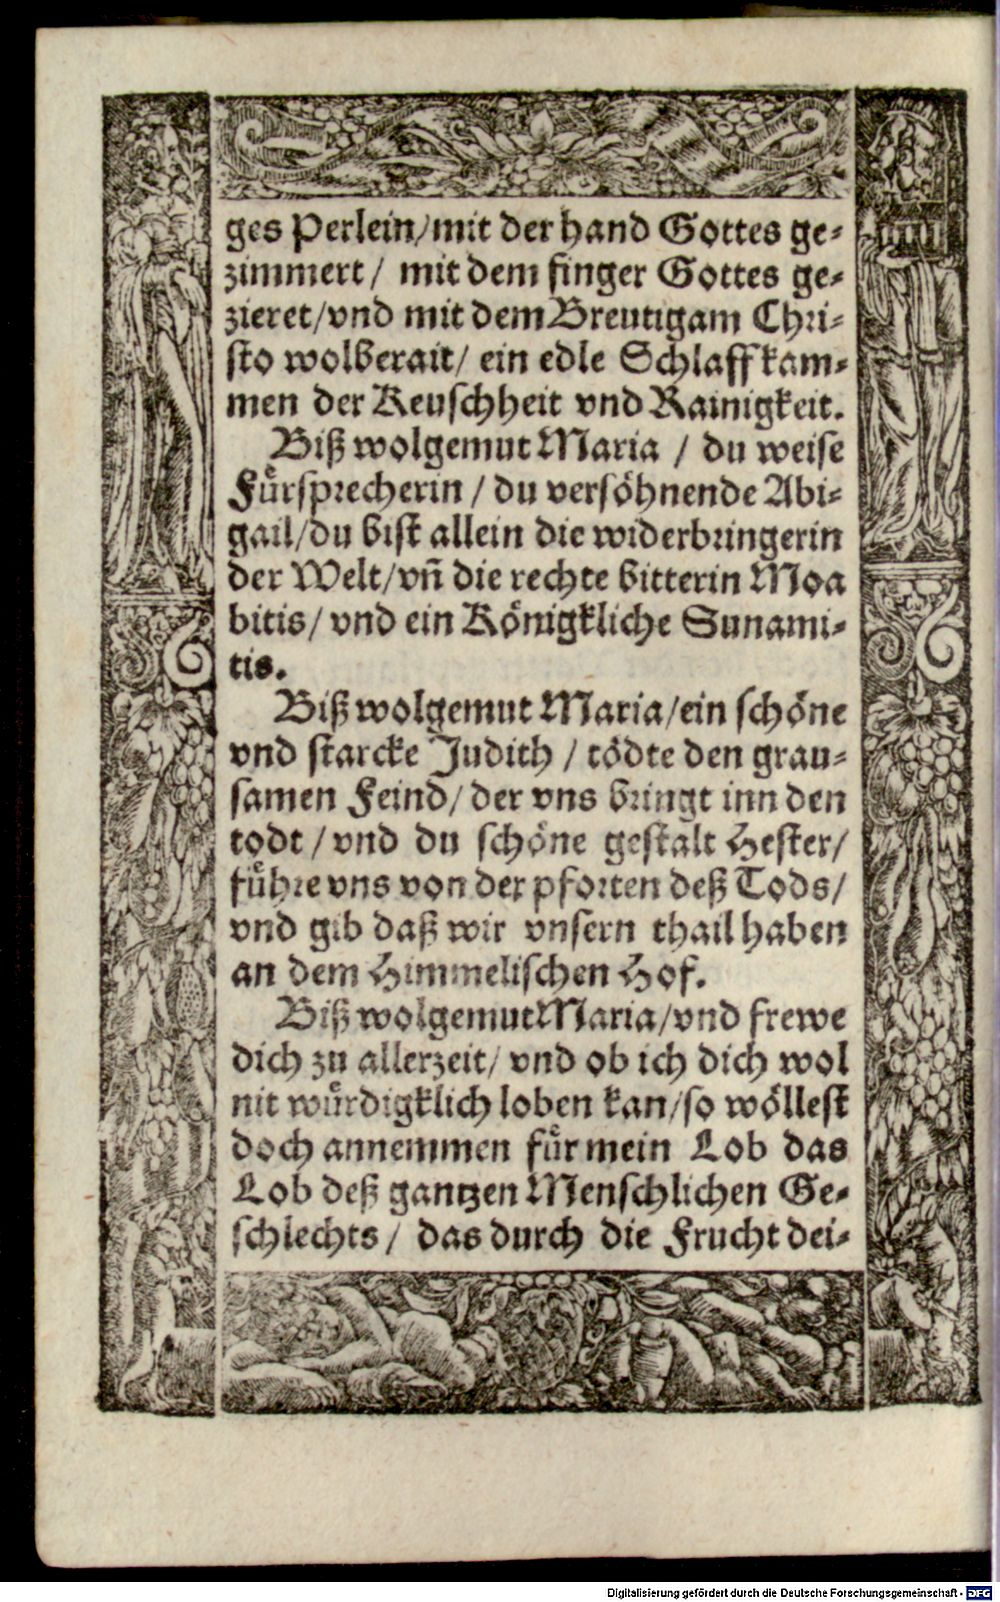 ges Perlein/mit der hand Gottes ge-
zimmert / mit dem finger Gottes ge-
zieret/vnd mit dem Breutigam Chri-
sto wolberait/ ein edle Schlaffkam-
men der Keuschheit vnd Rainigkeit.
Biß wolgemut Maria / du weise
Fürsprecherin / du versöhnende Abi-
gail/du bist allein die widerbringerin
der Welt/vñ die rechte bitterin Moa
bitis/ vnd ein Königkliche Sunami-
tis.
Biß wolgemut Maria/ein schöne
vnd starcke Judith / tödte den grau-
samen Feind/ der vns bringt inn den
todt / vnd du schöne gestalt Hester/
führe vns von der pforten deß Tods/
vnd gib daß wir vnsern thail haben
an dem Himmelischen Hof.
Biß wolgemut Maria/vnd frewe
dich zu allerzeit/ vnd ob ich dich wol
nit würdigklich loben kan/so wöllest
doch annemmen für mein Lob das
Lob deß gantzen Menschlichen Ge-
schlechts / das durch die Frucht dei-
Digitalisierung gefördert durch die Deutsche Forschungsgemeinschaft - DFG